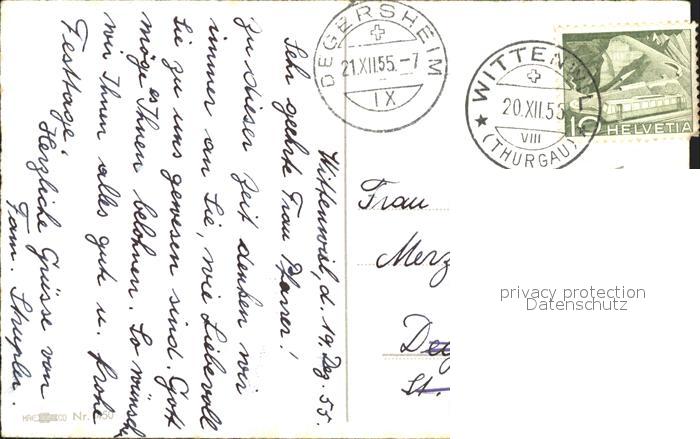 Wittenwil, d. 19. Dez. 55.
Sehr geehrte Frau Pfarrer!
Zu dieser Zeit denken wir
immer an Sie, wie liebevoll
Sie zu uns gewesen sind. Gott
möge es Ihnen belohnen. So wünschen
wir Ihnen alles gute u. frohe
Festtage.
Herzliche Grüsse von
Fam. Strupler.
DEGERSHEIM
21.XII.55.-7
IX
WITTENWIL
20.XII.55
VIII
(THURGAU)
10 HELVETIA
Frau
Merz
De
St.
privacy protection
Datenschutz
Nr.